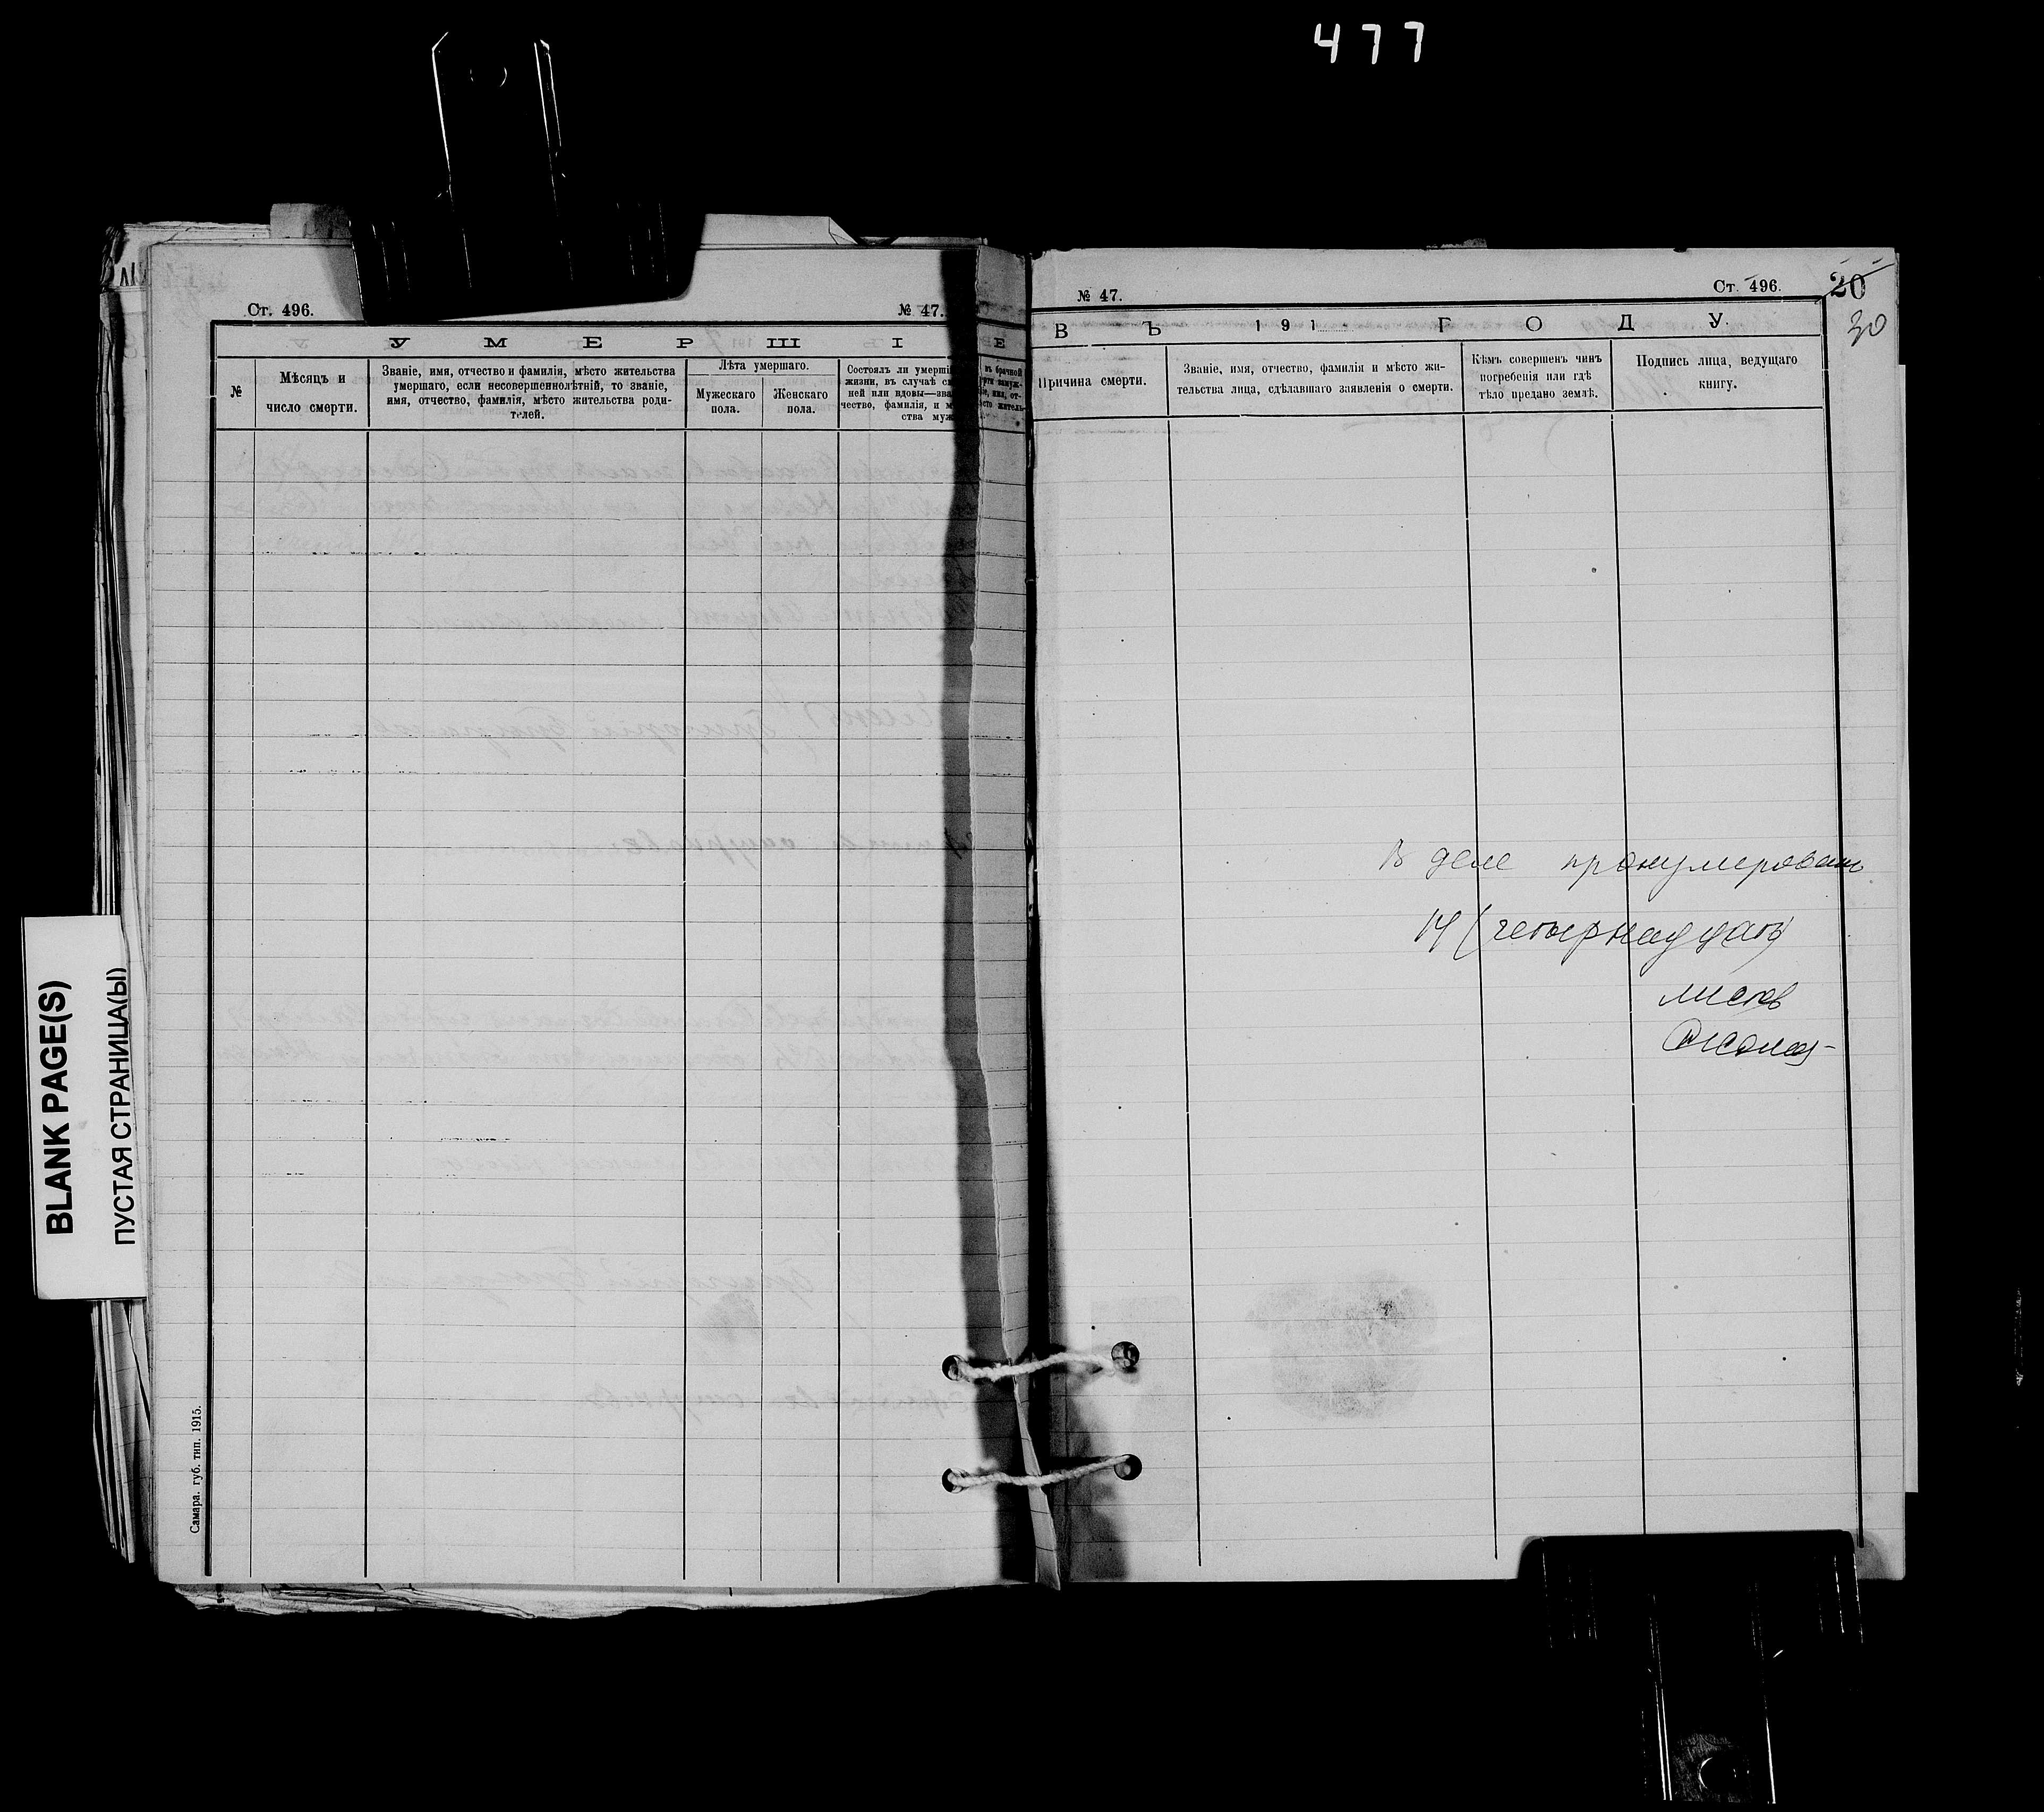 477
Ст. 496.
№ 47.
УМЕРШІЕ
№
Мѣсяцъ и
число смерти.
Званіе, имя, отчество и фамилія, мѣсто жительства
умершаго, если несовершеннолѣтній, то званіе,
имя, отчество, фамилія, мѣсто жительства роди-
телей.
Лѣта умершаго.
Мужескаго
пола.
Женскаго
пола.
Состоялъ ли умершій
жизни, въ случаѣ
ней или вдовы—
чество, фамилія, и
ства
въ брачной
Самара. губ. тип. 1915.
BLANK PAGE(S)
ПУСТАЯ СТРАНИЦА(Ы)
№ 47.
Ст. 496.
20
30
ВЪ 191 ГОДУ.
Причина смерти.
Званіе, имя, отчество, фамилія и мѣсто жи-
тельства лица, сдѣлавшаго заявленія о смерти.
Кѣмъ совершенъ чинъ
погребенія или гдѣ
тѣло предано землѣ.
Подпись лица, ведущаго
книгу.
В деле пронумеровано
14 (четырнадцать)
листов